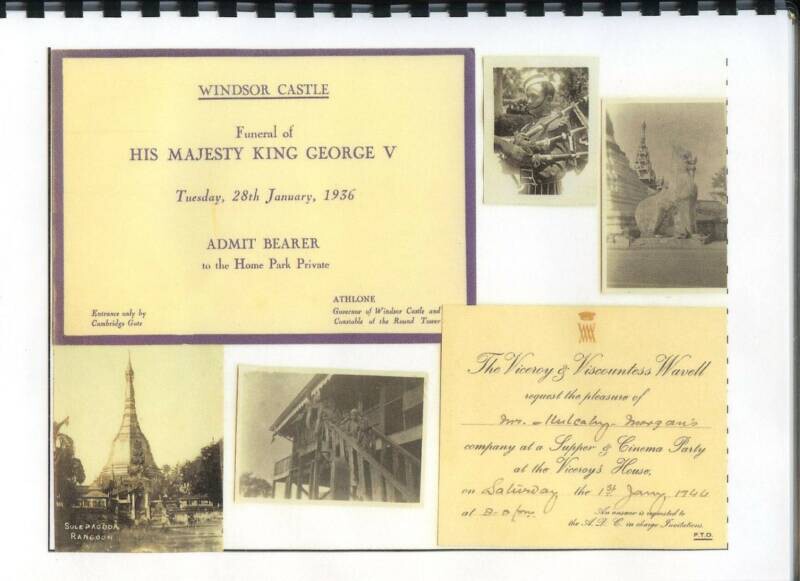 WINDSOR CASTLE
Funeral of
HIS MAJESTY KING GEORGE V
Tuesday, 28th January, 1936
ADMIT BEARER
to the Home Park Private
Entrance only by
Cambridge Gate
ATHLONE
Governor of Windsor Castle and
Constable of the Round Tower
The Viceroy & Viscountess Wavell
request the pleasure of
Mrs. Mulcahy-Morgan's
company at a Supper & Cinema Party
at the Viceroy's House,
on Saturday the 1st Jany 1944
at
An answer is requested to
the A.D.C. in charge Invitations.
P.T.O.
SULE PAGODA
RANGOON